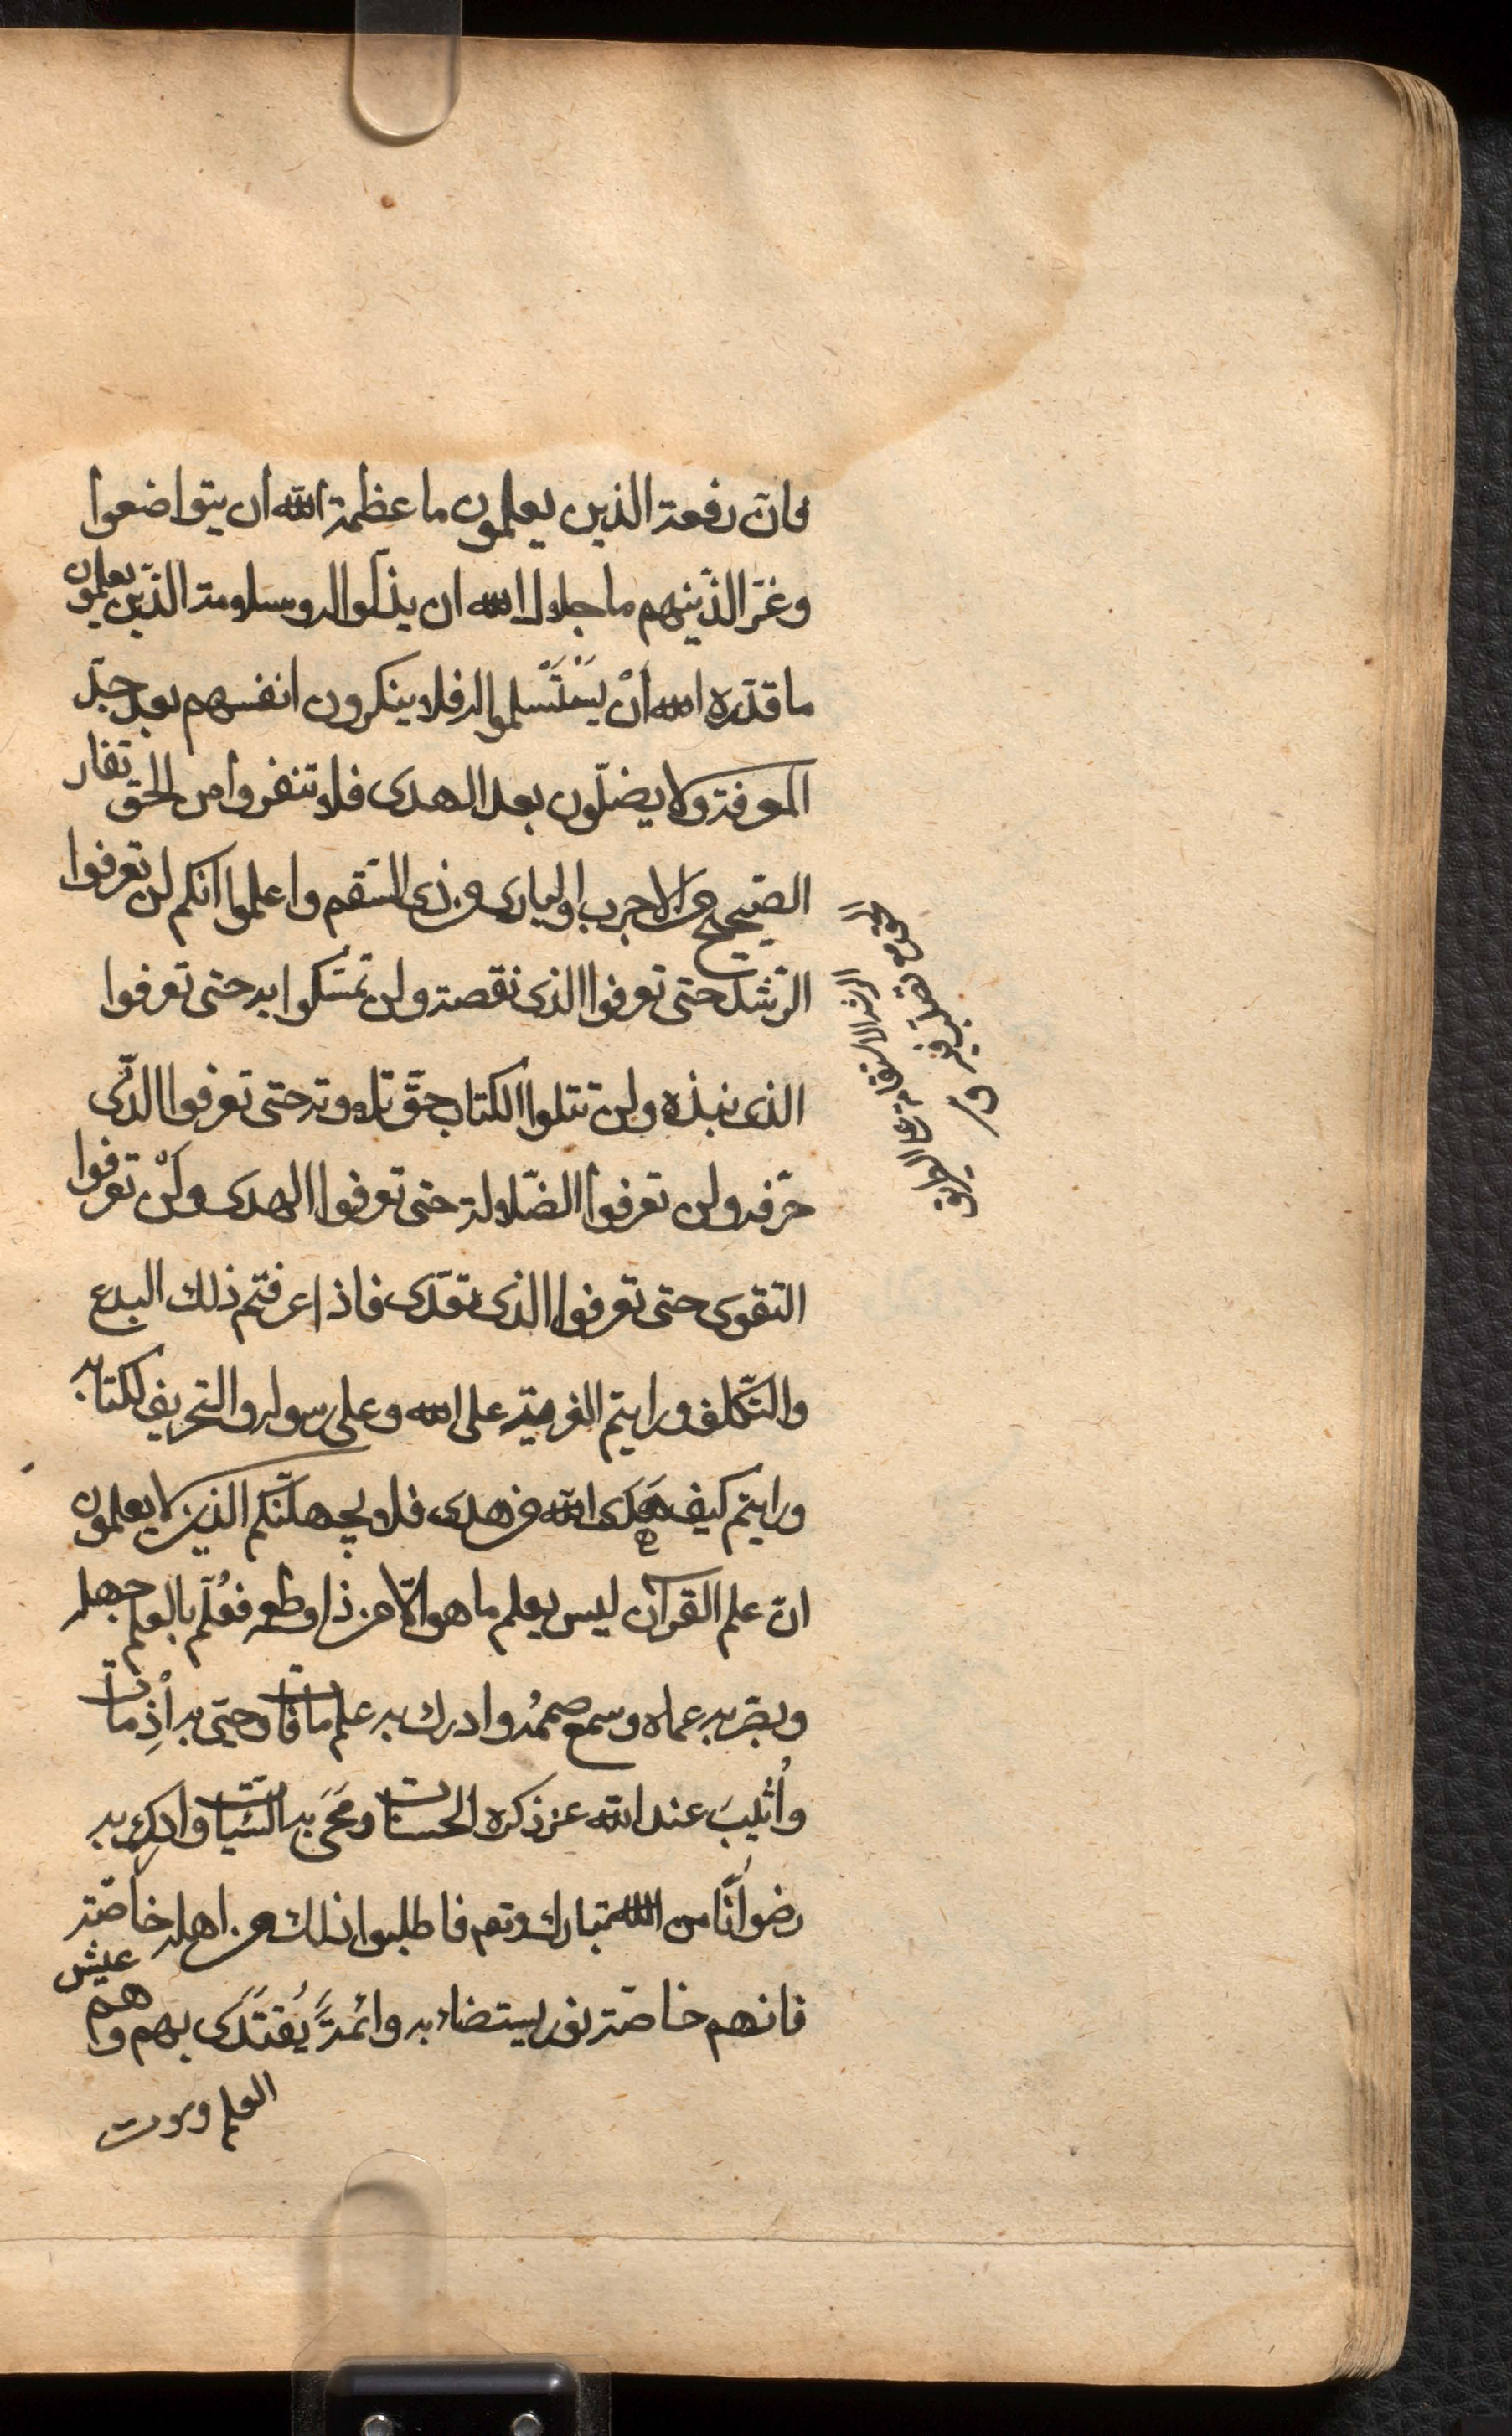 فان رفعة الذين يعلمون ما عظمة الله ان يتواضعوا
وعزّ الذّينهم ما جلال الله ان يذلّوا له وسلامة الذّين يعلمون
ما قدّره الله انْ يَسْتَسلموا له فلا ينكرون انفسهم بعد حدّ
المعرفة ولا يضلّون بعد الهدى فلا تنفروا من الحق نفار
الصّحيح من الاجرب والبارى من ذى السّقم واعلموا انكم لن تعرفوا
الرّشد حتى تعرفوا الذى نقصة ولن تمسّكوا به حتى تعرفوا
الذى نبذه ولن تتلوا الكتاب حقّ تلاوته حتى تعرفوا الذّى
حرّفه ولن تعرفوا الضّلالة حتى تعرفوا الهدى ولَنْ تعرفوا
التقوى حتى تعرفوا الذى تعدّى فاذا عرفتم ذلك البدع
والتّكلف ورايتم الفرية على الله وعلى رسوله والتحريف لكتابه
ورايتم كيف هَدَى الله من هدى فلا يجهلنّكم الذين لا يعلمون
انّ علم القرآن ليس يعلم ما هو الّا من ذاق طعمه فعُلّم بالعلم جهله
وبصّر به عماه وسمع به صممُه وادرك به علم ما فات وحيى به اذِ مات
واُثيبَ عند الله عز ذكره الحسنات ومَحَى به السّيئات وادرك به
رضوانًا من الله تبارك وتعم فاطلبوا ذلك من اهله خاصّة
فانهم خاصّة نور يستضاء به وائمةً يُقتَدَى بهم وهم عيش
العلم وموت